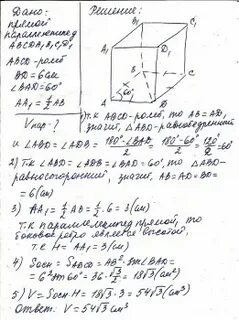 Дано:
Решение:
прямой
параллелепипед
ABCDA₁B₁C₁D₁
ABCD-ромб
BD=6см
∠BAD=60°
AA₁=½AB
Vпар-?
B₁
C₁
A₁
D₁
B
C
60°
A
D
1) т.к ABCD-ромб, то AB=AD,
значит, △ABD-равнобедренный
и ∠ABD=∠ADB=(180°-∠BAD)/2=(180°-60°)/2=120°/2=60°
2) т.к ∠ABD=∠ADB=∠BAD=60°, то △ABD-
равносторонний, значит, AB=AD=BD=
=6(см)
3) AA₁=½AB=½·6=3(см)
т.к параллелепипед прямой, то
боковое ребро является высотой,
т.к H=AA₁=3(см)
4) Sосн=SABCD=AB²·sin∠BAD=
=6²sin60°=36·√3/2=18√3(см²)
5) V=Sосн·H=18√3·3=54√3(см³)
Ответ: V=54√3(см³)